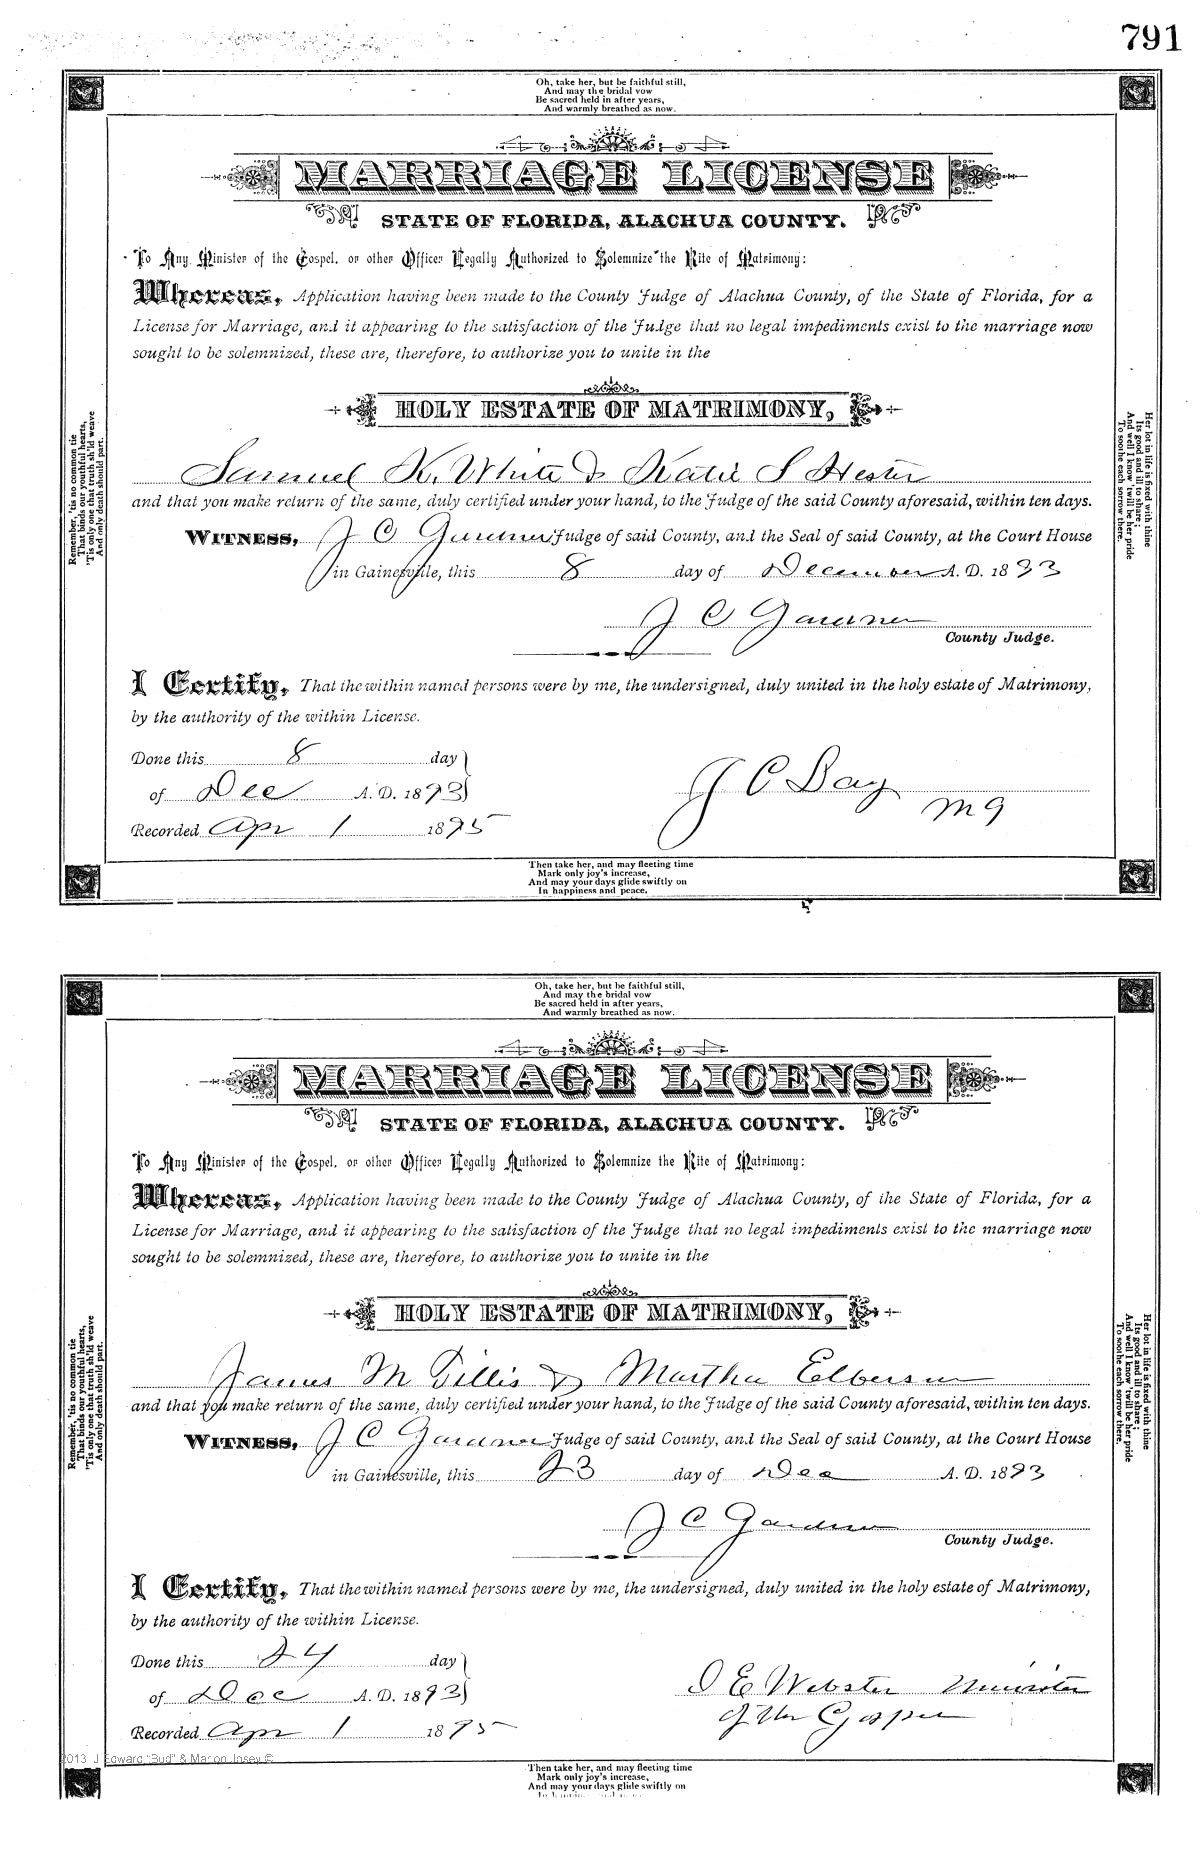 791
Oh, take her, but be faithful still,
And may the bridal vow
Be sacred held in after years,
And warmly breathed as now.
MARRIAGE LICENSE
STATE OF FLORIDA, ALACHUA COUNTY.
To Any Minister of the Gospel, or other Officer Legally Authorized to Solemnize the Rite of Matrimony:
Whereas, Application having been made to the County Judge of Alachua County, of the State of Florida, for a
License for Marriage, and it appearing to the satisfaction of the Judge that no legal impediments exist to the marriage now
sought to be solemnized, these are, therefore, to authorize you to unite in the
HOLY ESTATE OF MATRIMONY,
Samuel K. White & Katie S Hester
and that you make return of the same, duly certified under your hand, to the Judge of the said County aforesaid, within ten days.
WITNESS, J C Gardner Judge of said County, and the Seal of said County, at the Court House
in Gainesville, this 8 day of December A. D. 1893
J C Gardner
County Judge.
I Certify, That the within named persons were by me, the undersigned, duly united in the holy estate of Matrimony,
by the authority of the within License.
Done this 8 day
of Dec A. D. 1893
J C Bay
M G
Recorded Apr 1 1895
Remember, 'tis no common tie
That binds our youthful hearts,
'Tis only one that truth sh'ld weave
And only death should part.
Her lot in life is fixed with thine
Its good and ill to share;
And well I know 'twill be her pride
To soothe each sorrow there.
Then take her, and may fleeting time
Mark only joy's increase,
And may your days glide swiftly on
In happiness and peace.
Oh, take her, but be faithful still,
And may the bridal vow
Be sacred held in after years,
And warmly breathed as now.
MARRIAGE LICENSE
STATE OF FLORIDA, ALACHUA COUNTY.
To Any Minister of the Gospel, or other Officer Legally Authorized to Solemnize the Rite of Matrimony:
Whereas, Application having been made to the County Judge of Alachua County, of the State of Florida, for a
License for Marriage, and it appearing to the satisfaction of the Judge that no legal impediments exist to the marriage now
sought to be solemnized, these are, therefore, to authorize you to unite in the
HOLY ESTATE OF MATRIMONY,
James M Tillis & Martha Elberson
and that you make return of the same, duly certified under your hand, to the Judge of the said County aforesaid, within ten days.
WITNESS, J C Gardner Judge of said County, and the Seal of said County, at the Court House
in Gainesville, this 23 day of Dec A. D. 1893
J C Gardner
County Judge.
I Certify, That the within named persons were by me, the undersigned, duly united in the holy estate of Matrimony,
by the authority of the within License.
Done this 24 day
of Dec A. D. 1893
E Webster Minister
of the Gospel
Recorded Apr 1 1895
Remember, 'tis no common tie
That binds our youthful hearts,
'Tis only one that truth sh'ld weave
And only death should part.
Her lot in life is fixed with thine
Its good and ill to share;
And well I know 'twill be her pride
To soothe each sorrow there.
2013 J Edward "Bud" & Marion Josey ©
Then take her, and may fleeting time
Mark only joy's increase,
And may your days glide swiftly on